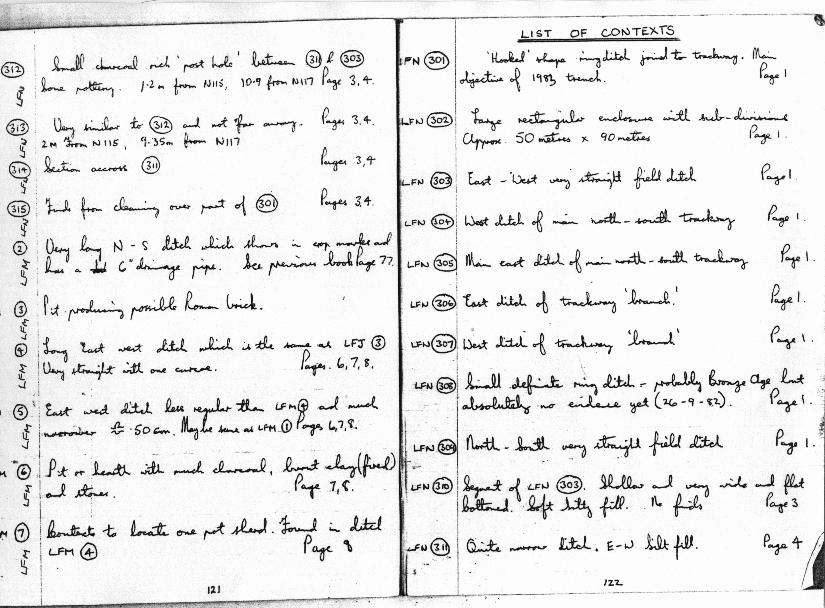 312 LFN Small charcoal rich 'post hole' between 311 & 303
bone pottery. 1.2m from N115, 10.9 from N117 Page 3,4.
313 LFN Very similar to 312 and not far away. Pages 3,4.
2M From N115, 9.35m from N117
314 LFN Section accross 311 Pages 3,4
315 LFN Finds from cleaning over part of 301 Pages 3,4.
2 LFM Very long N-S ditch which shows in crop marks and
has a 6" drainage pipe. See previous book Page 77.
3 LFM Pit producing possible Roman brick.
4 LFM Long East west ditch which is the same as LFJ 3
Very straight with one curve. Pages. 6,7,8.
5 LFM East west ditch less regular than LFM 4 and much
narrower ≈ 50cm. Maybe same as LFM 1 Pages 6,7,8.
6 LFM Pit or hearth with much charcoal, burnt clay (fired)
and stones. Page 7,8.
7 LFM Contexts to locate one pot sherd. Found in ditch
LFM 4 Page 8
121
LIST OF CONTEXTS
LFN 301 'Hooked' shape ring ditch joined to trackway. Main
objective of 1982 trench. Page 1
LFN 302 Large rectangular enclosure with sub-divisions
Approx. 50 metres x 90 metres Page 1.
LFN 303 East-West very straight field ditch Page 1.
LFN 304 West ditch of main north-south trackway Page 1.
LFN 305 Main east ditch of main north-south trackway Page 1.
LFN 306 East ditch of trackway 'branch.' Page 1.
LFN 307 West ditch of trackway 'branch' Page 1.
LFN 308 Small definate ring ditch - probably Bronze Age but
absolutely no evidence yet (26-9-82). Page 1.
LFN 309 North-South very straight field ditch Page 1.
LFN 310 Segment of LFN 303. Shallow and very wide and flat
bottomed. Soft silty fill. No finds Page 3
LFN 311 Quite narrow ditch. E-W Silt fill. Page 4
122